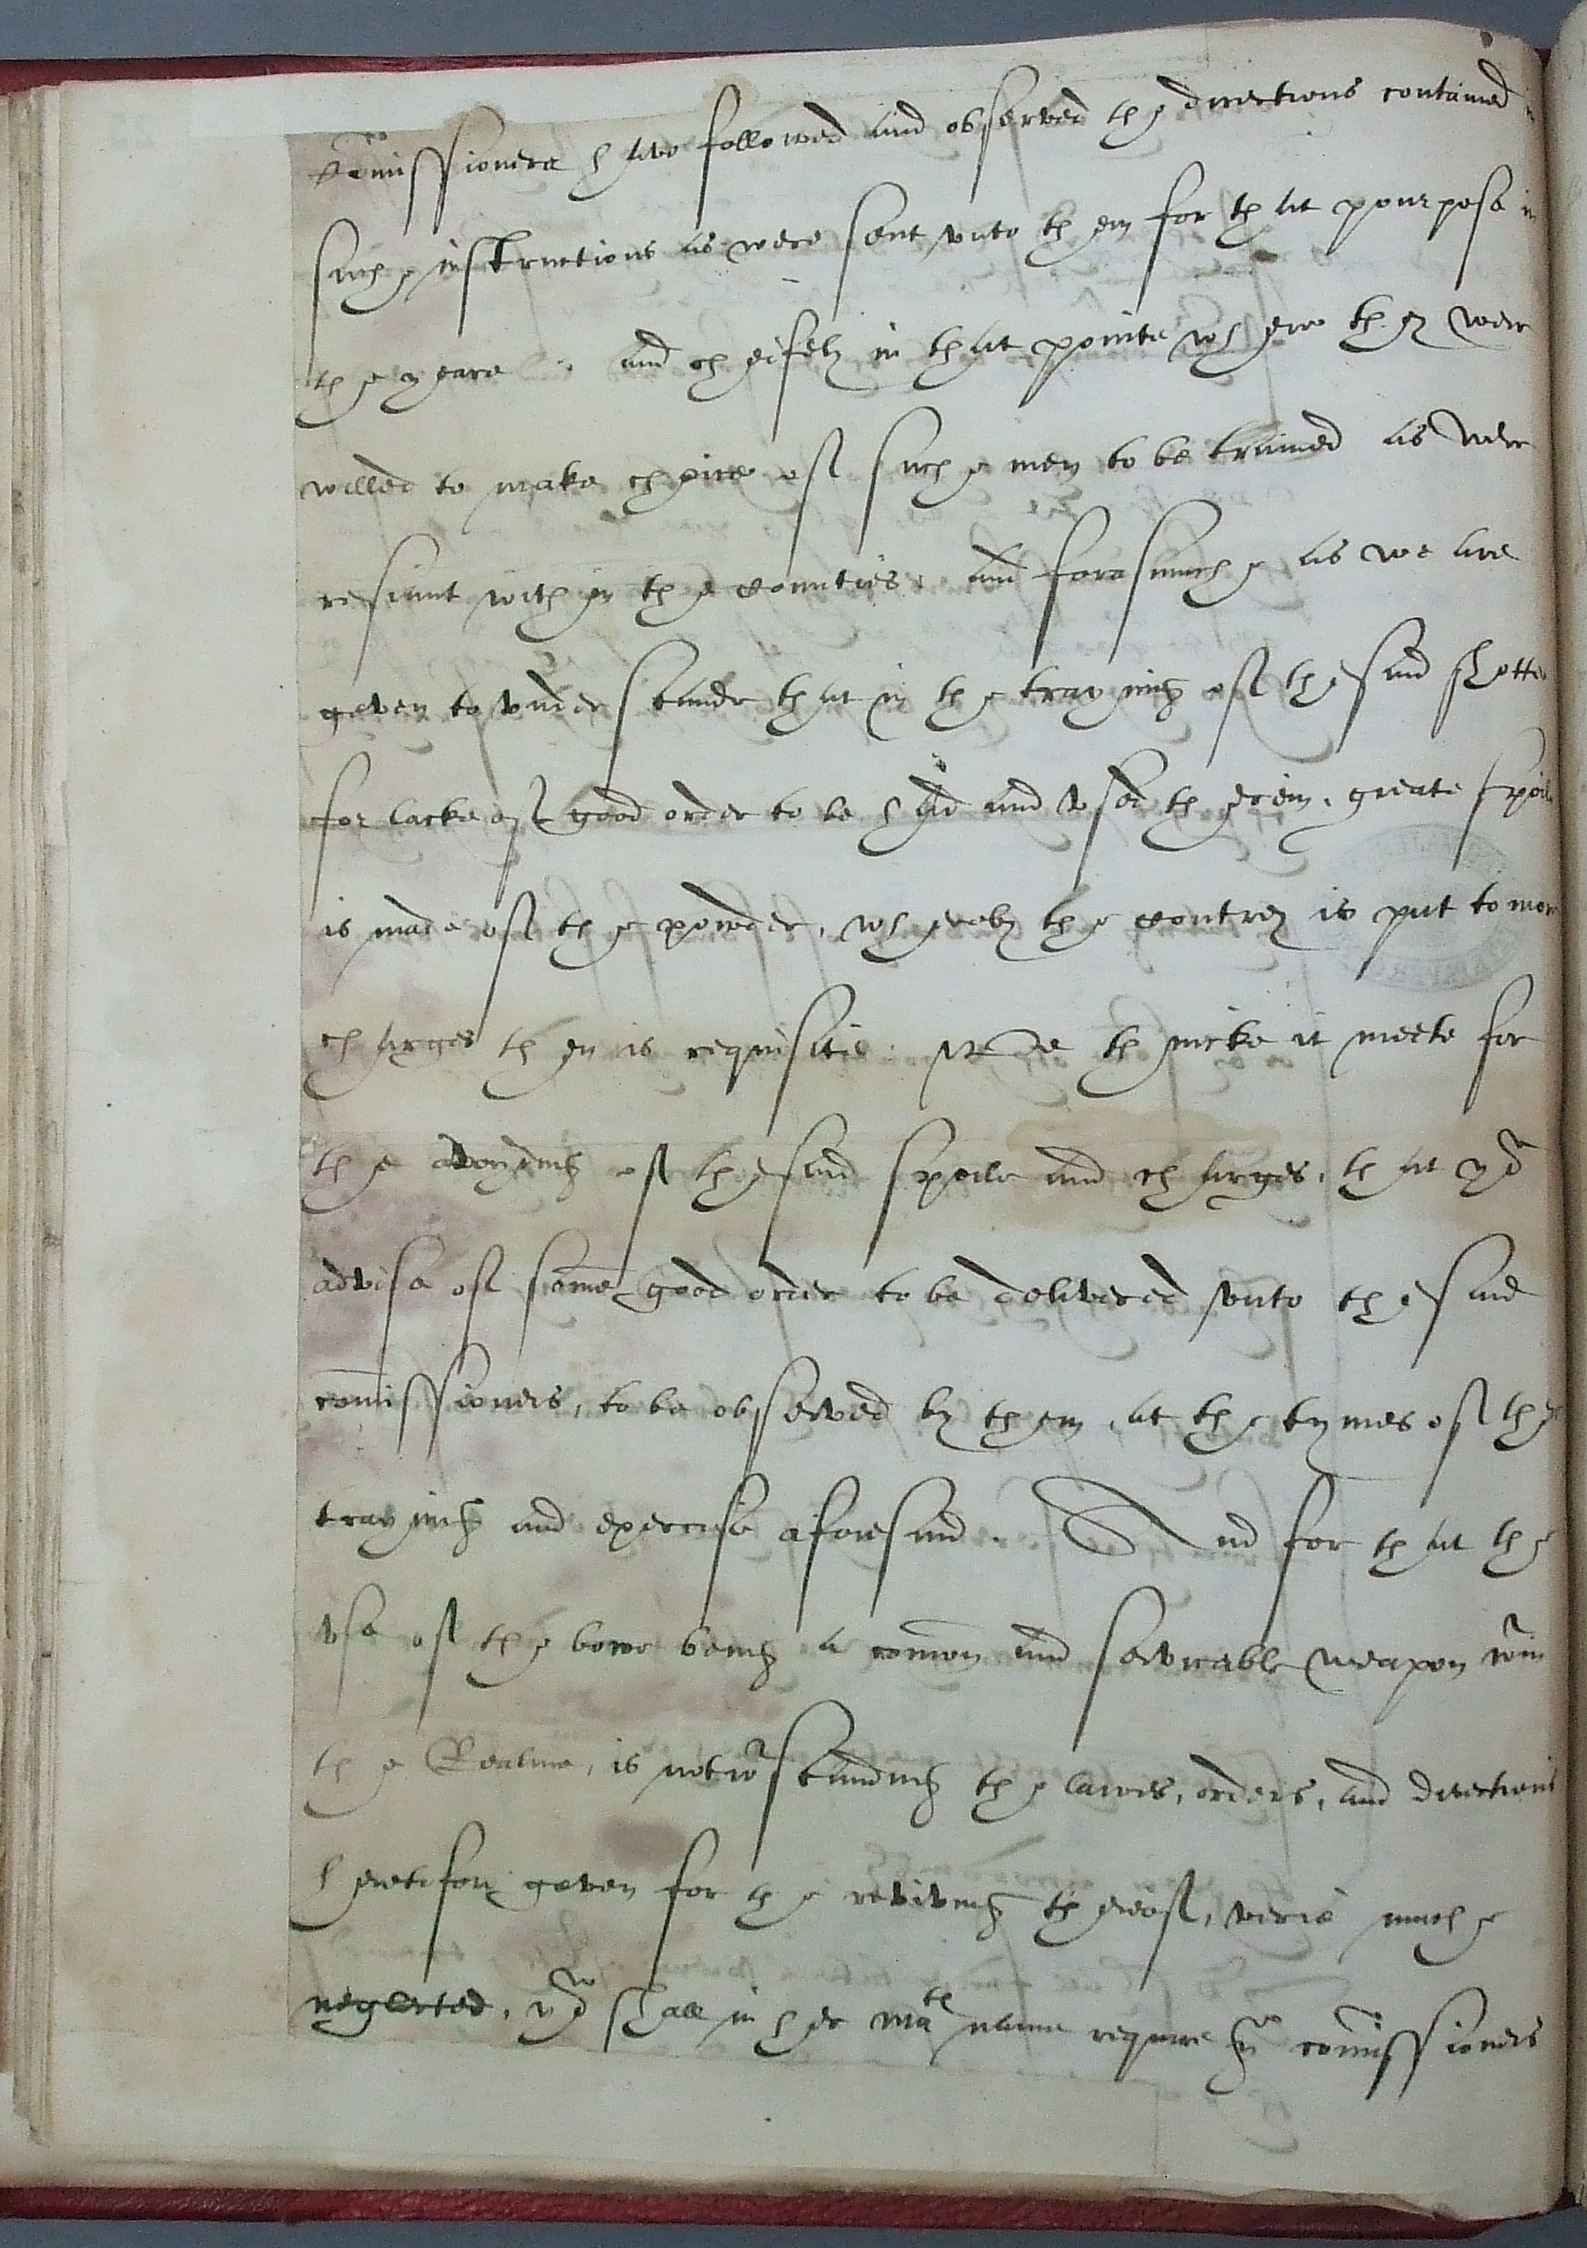 Comissioners have followed and observed the directions contained in
suche instructions as were sent unto them for that pourpose in
the yeare . and cheifely in that pointe where they were
willed to make choice of suche men to be trained as were
resiant within the counties. And forasmuche as we are
geven to understande that in the trayning of the said shotte
for lacke of good order to be had and used therein, greate spoile
is made of the powder, whereby the contrey is put to more
charges then is requisite. We thincke it meete for
the avoyding of the said spoile and charges, that you
advise of some good order to be delivered unto the said
comissioners, to be observed by them, at the tymes of the
trayning and exercise aforesaid. And for that the
use of the bowe being a comon and servicable weapon wthin
the Realme, is notwthstanding the lawes, orders, and directions
heretofore geven for the reviving thereof, verie muche
neglected, you shall in her Mats name require the comissioners